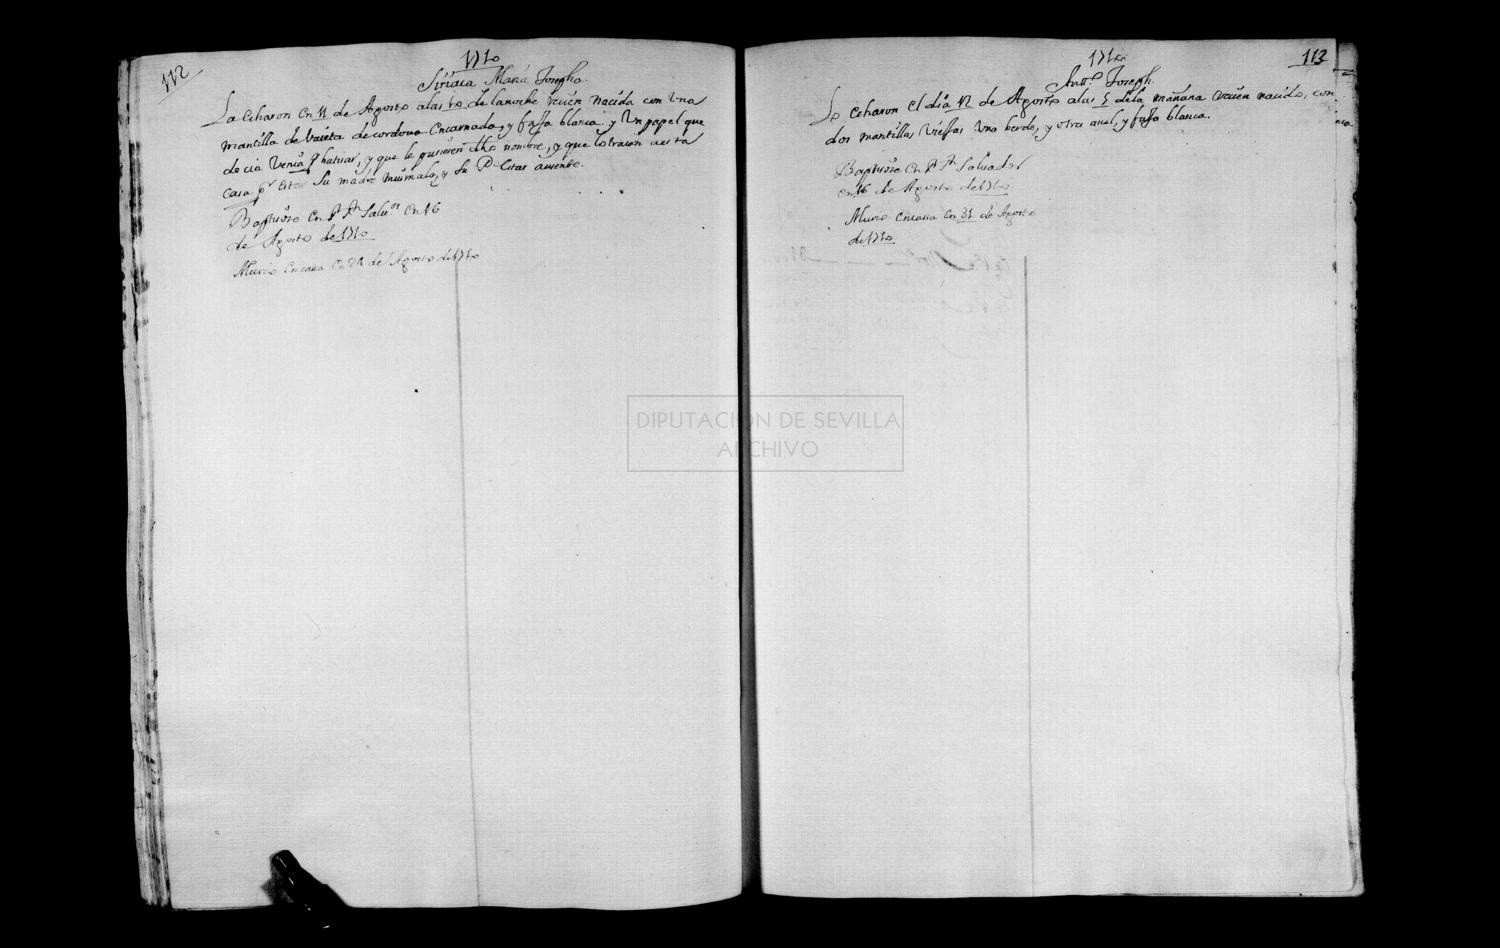 112
1710
Siriaca Maria Josepha.
La echaron en 11 de Agosto alas 10 de lanoche recien nacida con una
mantilla de baieta de cordova encarnada, y faxa blanca. y un papel que
decia venia p baticar, y que le pusiesen dho nombre, y que lo traian a esta
casa pr estar su madre mui mala, y su Pe estar ausente.
Baptisose en Sn Salvor en 16
de Agosto de 1710
Murio en casa en 24 de Agosto de 1710
113
1710
Antto Joseph.
Lo echaron el dia 12 de Agosto alas 5 dela mañana recien nacido, con
dos mantillas viejas una berde, y otra azul, y faxa blanca.
Baptisose en Sn Salvador
en 16 de Agosto de 1710
Murio en casa en 31 de Agosto
de 1710
DIPUTACIÓN DE SEVILLA
ARCHIVO